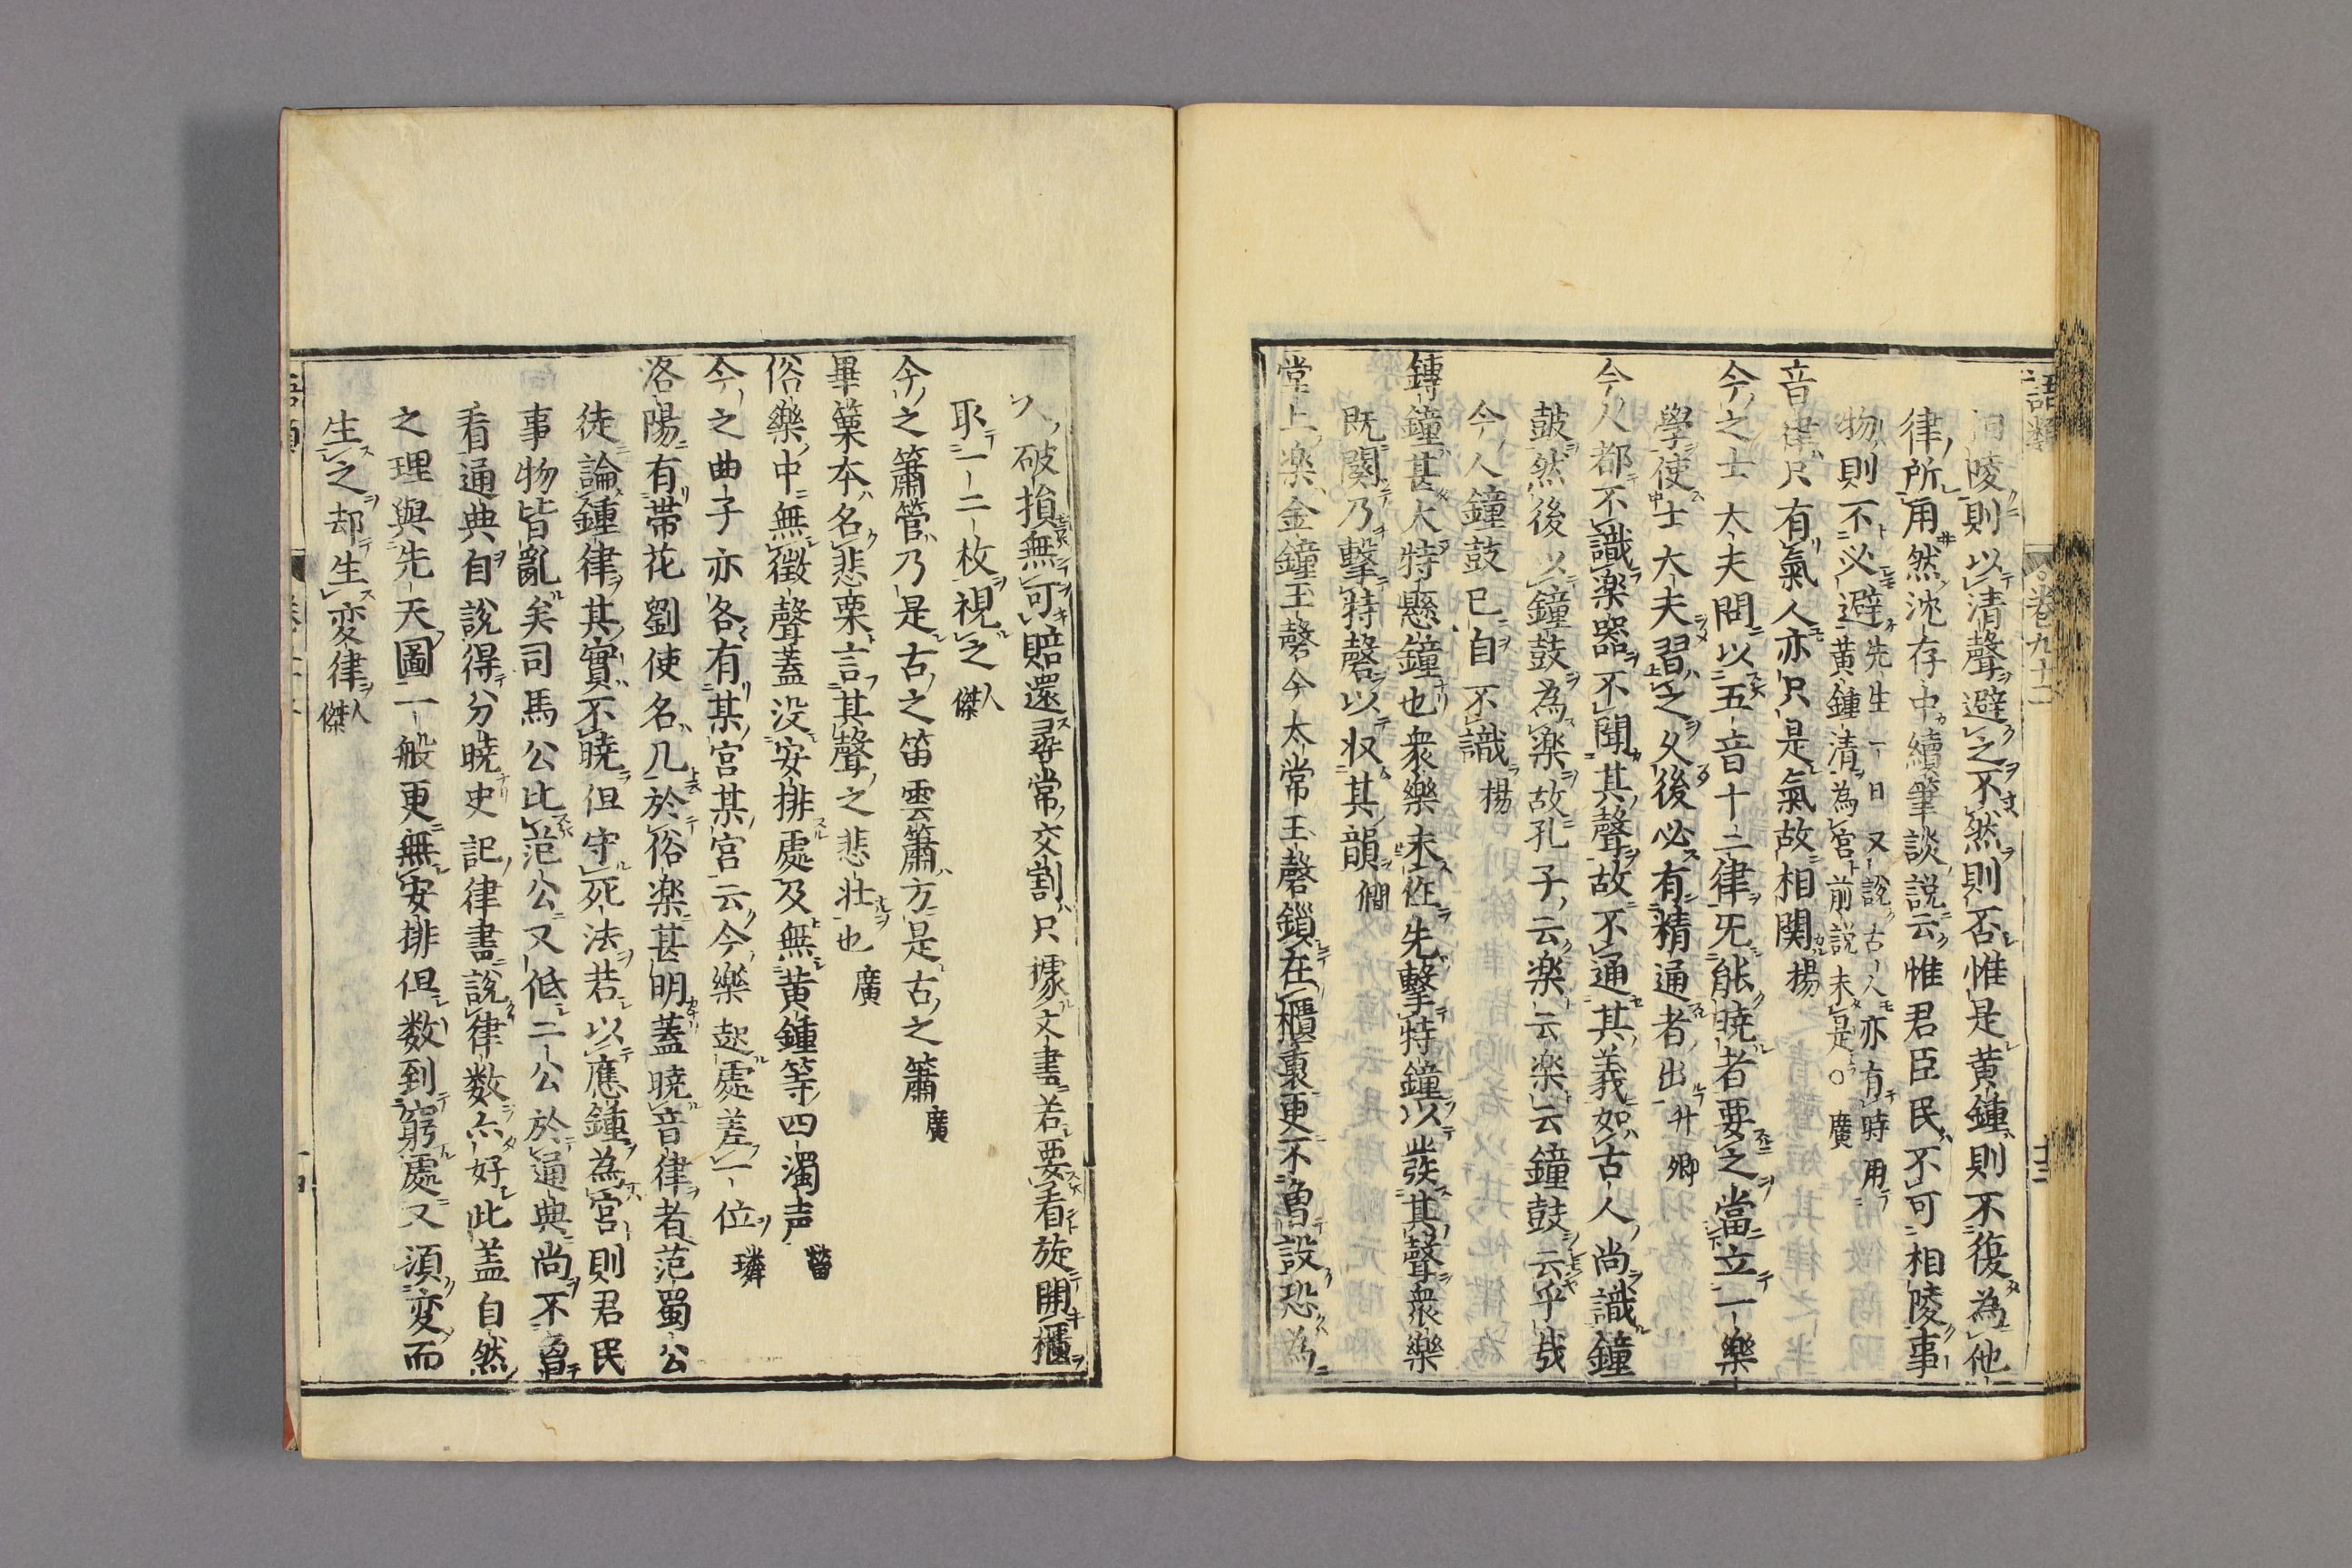 語類　卷九十二　十三
陵則以清聲避之不然則否惟是黄鍾則不復為他
律所用然沈存中續筆談説云惟君臣民不可相陵事
物則不必避先生一日又説古人亦有時用
黄鍾清為宮前説未是○廣
音律只有氣人亦只是氣故相関楊
今之士大夫問以五音十二律旡能曉者要之當立一樂
學使士大夫習之久後必有精通者出升卿
今人都不識楽器不聞其聲故不通其義如古人尚識鐘
鼓然後以鐘鼓為楽故孔子云楽云楽云鐘鼓云乎哉
今人鐘鼓已自不識楊
鎛鐘甚大特懸鐘也衆樂未作先擊特鐘以發其聲衆樂
既闋乃擊特磬以収其韻僩
堂上楽金鐘玉磬今太常玉磬鎖在櫃裏更不曽設恐為
人破損無可賠還尋常交割只據文書若要看旋開櫃
取一二枚視之人傑
今之簫管乃是古之笛雲簫方是古之簫廣
畢篥本名悲栗言其聲之悲壮也廣
俗樂中無徵聲蓋没安排處及無黄鍾等四濁声䕫
今之曲子亦各有某宮某宮云今樂起處差一位璘
洛陽有帯花劉使名几於俗楽甚明蓋曉音律者范蜀公
徒論鍾律其實不曉但守死法若以應鍾為宮則君民
事物皆亂矣司馬公比范公又低二公於通典尚不曽
看通典自說得分曉史記律書說律数亦好此蓋自然
之理與先天圖一般更無安排但数到窮處又須変而
生之却生変律人傑